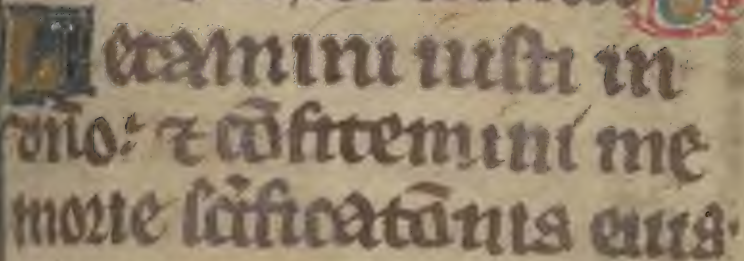 Letamini iusti in
dn̄o: ⁊ cōfitemini me
morie sc̄ificatōnis eius·